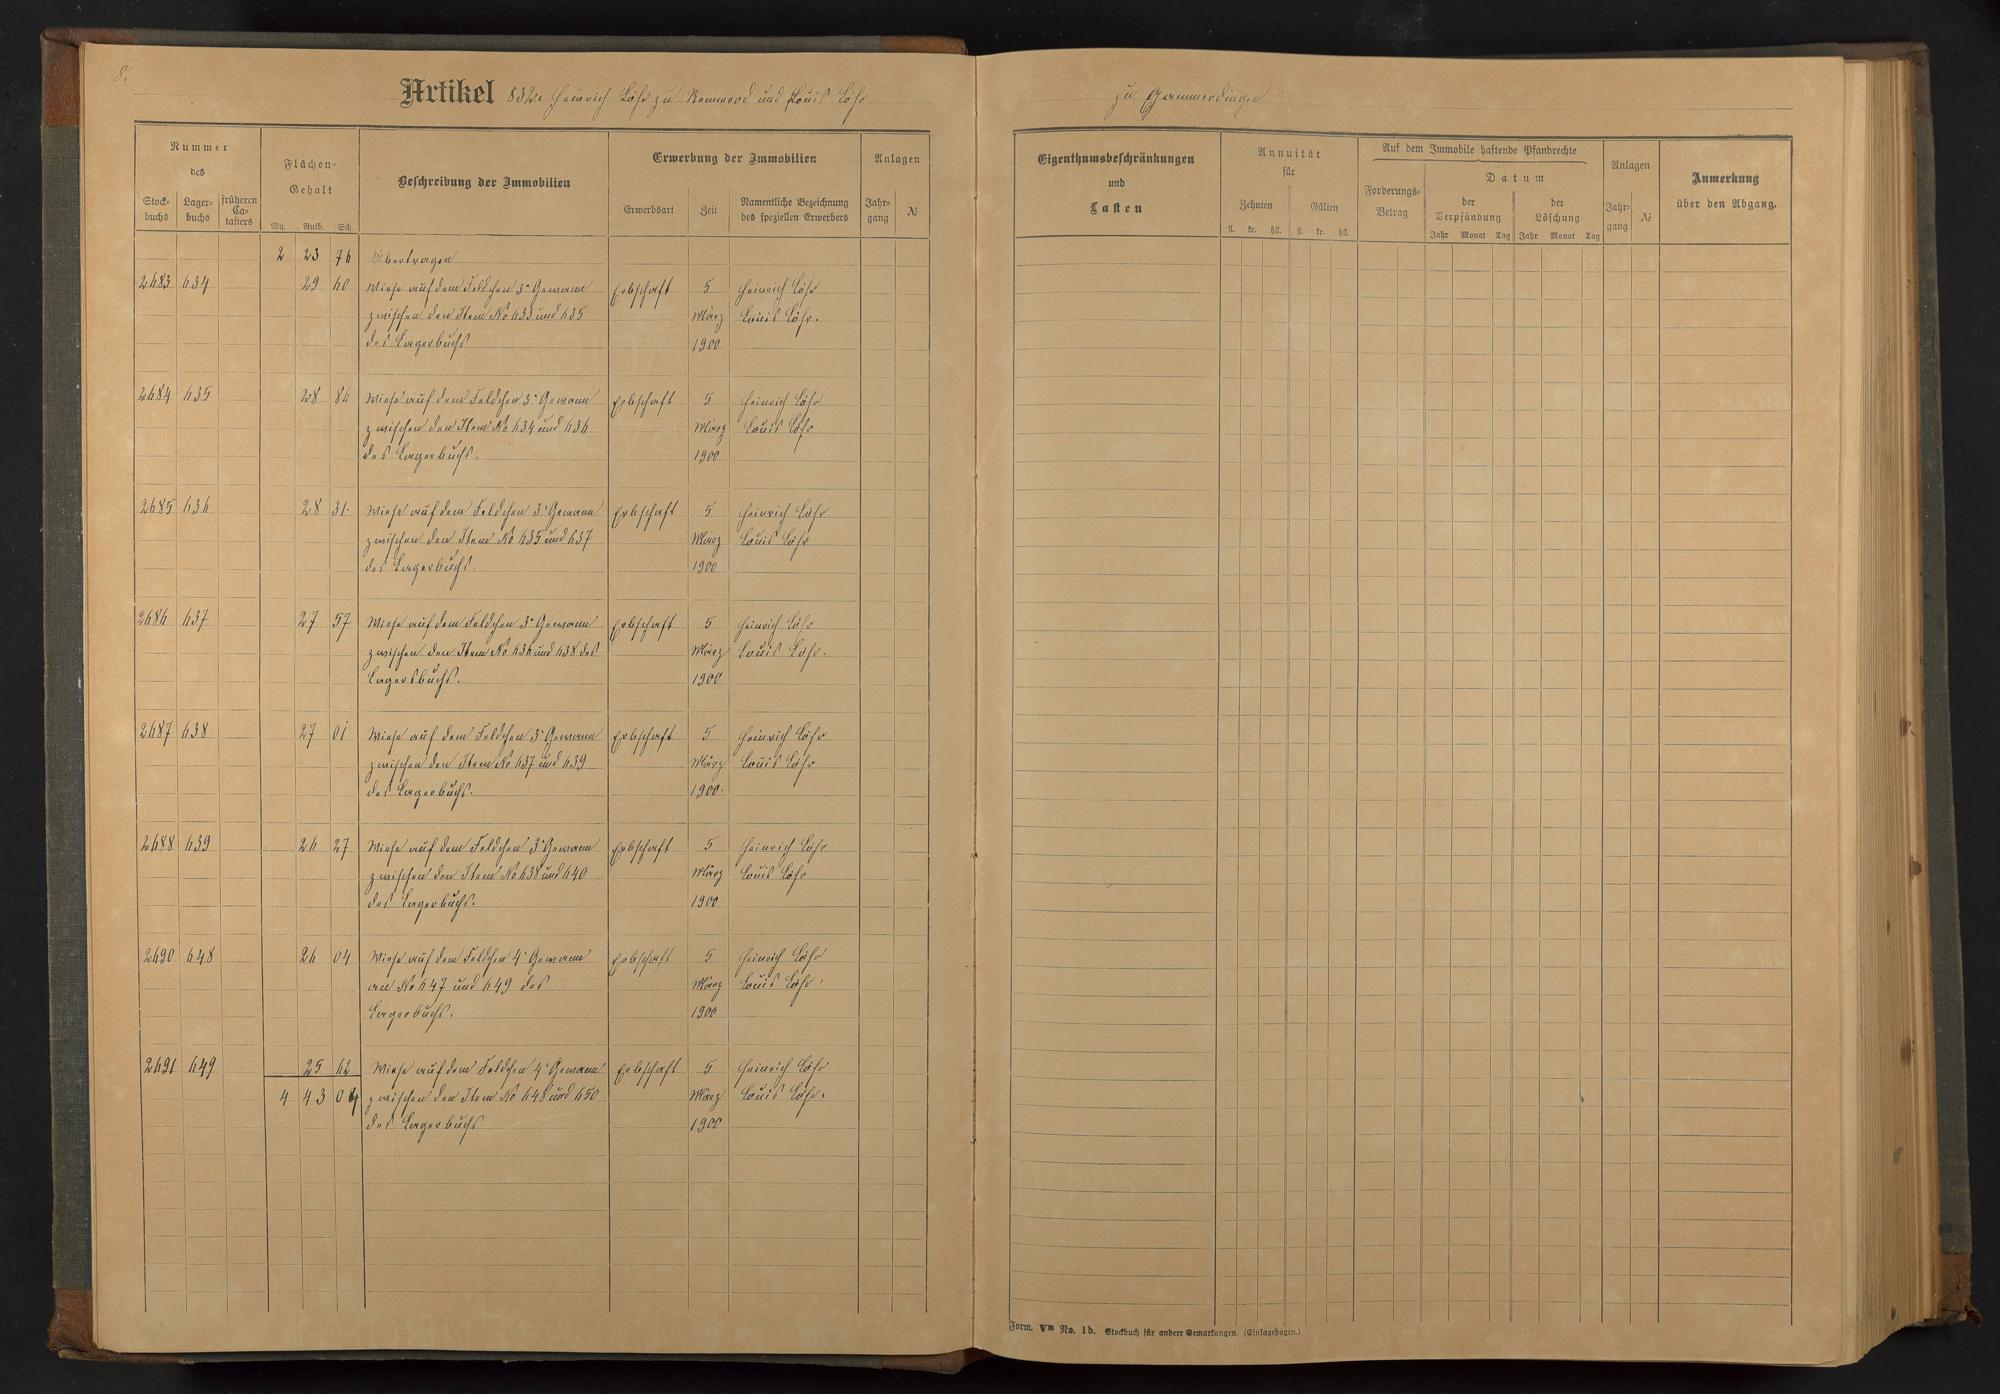 8.
Artikel 832. Heinrich Löhr zu Rennerod und Louis Löhr
zu Gammerdingen
Nummer des
Stock-buchs Lager-buchs früheren Ca-tasters
Flächen-Gehalt
Mg. Ruth. Sch.
Beschreibung der Immobilien
Erwerbung der Immobilien
Erwerbsart Zeit Namentliche Bezeichnung des speziellen Erwerbers
Anlagen
Jahr-gang №
Eigenthumsbeschränkungen
und
Lasten
Annuität
für
Zehnten Gülten
fl. kr. hll. fl. kr. hll.
Auf dem Immobile haftende Pfandrechte
Forderungs-Betrag
Datum
der Verpfändung der Löschung
Jahr Monat Tag Jahr Monat Tag
Anlagen
Jahr-gang №
Anmerkung
über den Abgang.
2 23 76 Übertragen
2683 634 29 60 Wiese auf dem Feldchen 3r Gewann Erbschaft 5 Heinrich Löhr
zwischen den Item No 633 und 635 März Louis Löhr.
des Lagerbuchs 1900
2684 635 28 86 Wiese auf dem Feldchen 3r Gewann Erbschaft 5 Heinrich Löhr
zwischen den Item No 634 und 636 März Louis Löhr
des Lagerbuchs. 1900
2685 636 28 31. Wiese auf dem Feldchen 3r Gewann Erbschaft 5 Heinrich Löhr
zwischen den Item No 635 und 637 März Louis Löhr
des Lagerbuchs. 1900
2686 637 27 57 Wiese auf dem Feldchen 3r Gewann Erbschaft 5 Heinrich Löhr
zwischen den Item No 636 und 638 des März Louis Löhr.
Lagersbuchs. 1900
2687 638 27 01 Wiese auf dem Feldchen 3r Gewann Erbschaft 5 Heinrich Löhr
zwischen den Item No 637 und 639 März Louis Löhr
des Lagerbuchs. 1900.
2688 639 26 27 Wiese auf dem Feldchen 3r Gewann Erbschaft 5 Heinrich Löhr
zwischen den Item No 638 und 640 März Louis Löhr
des Lagerbuchs. 1900
2690 648 26 04 Wiese auf dem Feldchen 4r Gewann Erbschaft 5 Heinrich Löhr
an No 647 und 649 des März Louis Löhr
Lagerbuchs. 1900
2691 649 25 62 Wiese auf dem Feldchen 4r Gewann Erbschaft 5 Heinrich Löhr
4 43 04 zwischen den Item No 648 und 650 März Louis Löhr.
des Lagerbuchs 1900
Form. VIII No. 1b. Stockbuch für andere Gemarkungen. (Einlagebogen.)